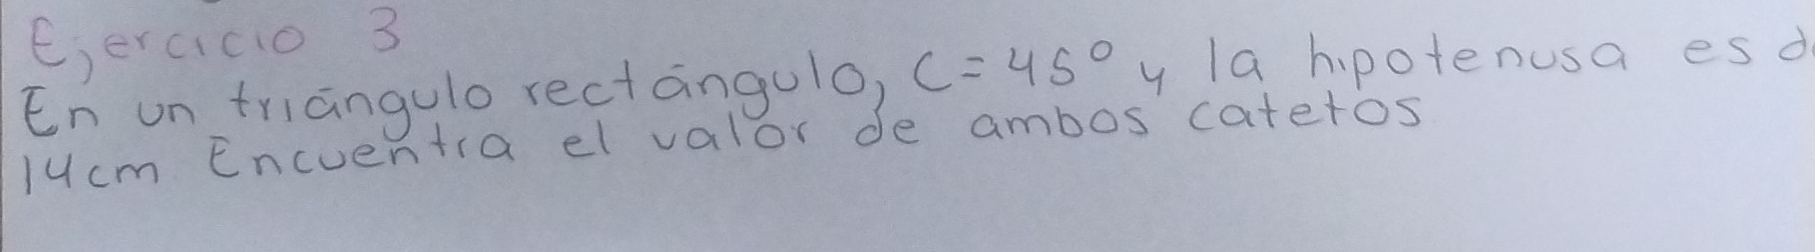 Ejercicio 3
En un triángulo rectángulo, C=45° y la hipotenusa es d
14cm. Encuentra el valor de ambos catetos